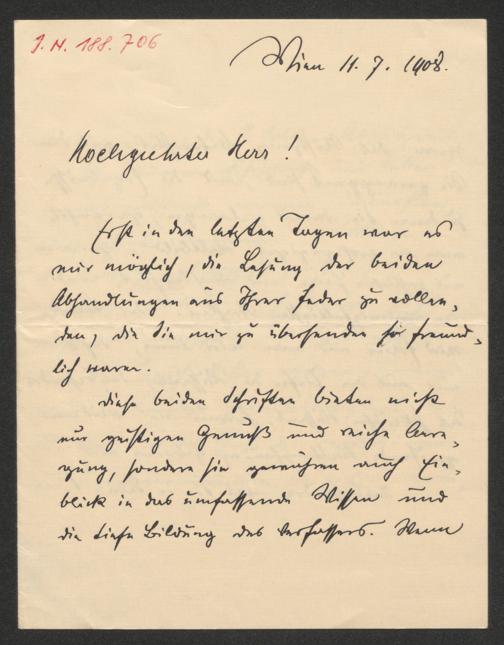 I. N. 188.706
Wien 11. 7. 1908.
Hochgeehrter Herr!
Erst in den letzten Tagen war es
mir möglich, die Lesung der beiden
Abhandlungen aus Ihrer Feder zu vollen-
den, die Sie mir zu übersenden so freund-
lich waren.
Diese beiden Schriften bieten nicht
nur geistigen Genuß und reiche Anre-
gung, sondern sie gewähren auch Ein-
blick in das umfassende Wissen und
die tiefe Bildung des Verfassers. Wenn